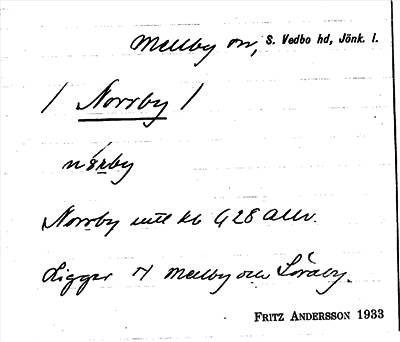 Mellby sn, S. Vedbo hd, Jönk. l.
/ Norrby /
Norrby intill kb G 28 Allm.
Ligger N Mellby och
FRITZ ANDERSSON 1933